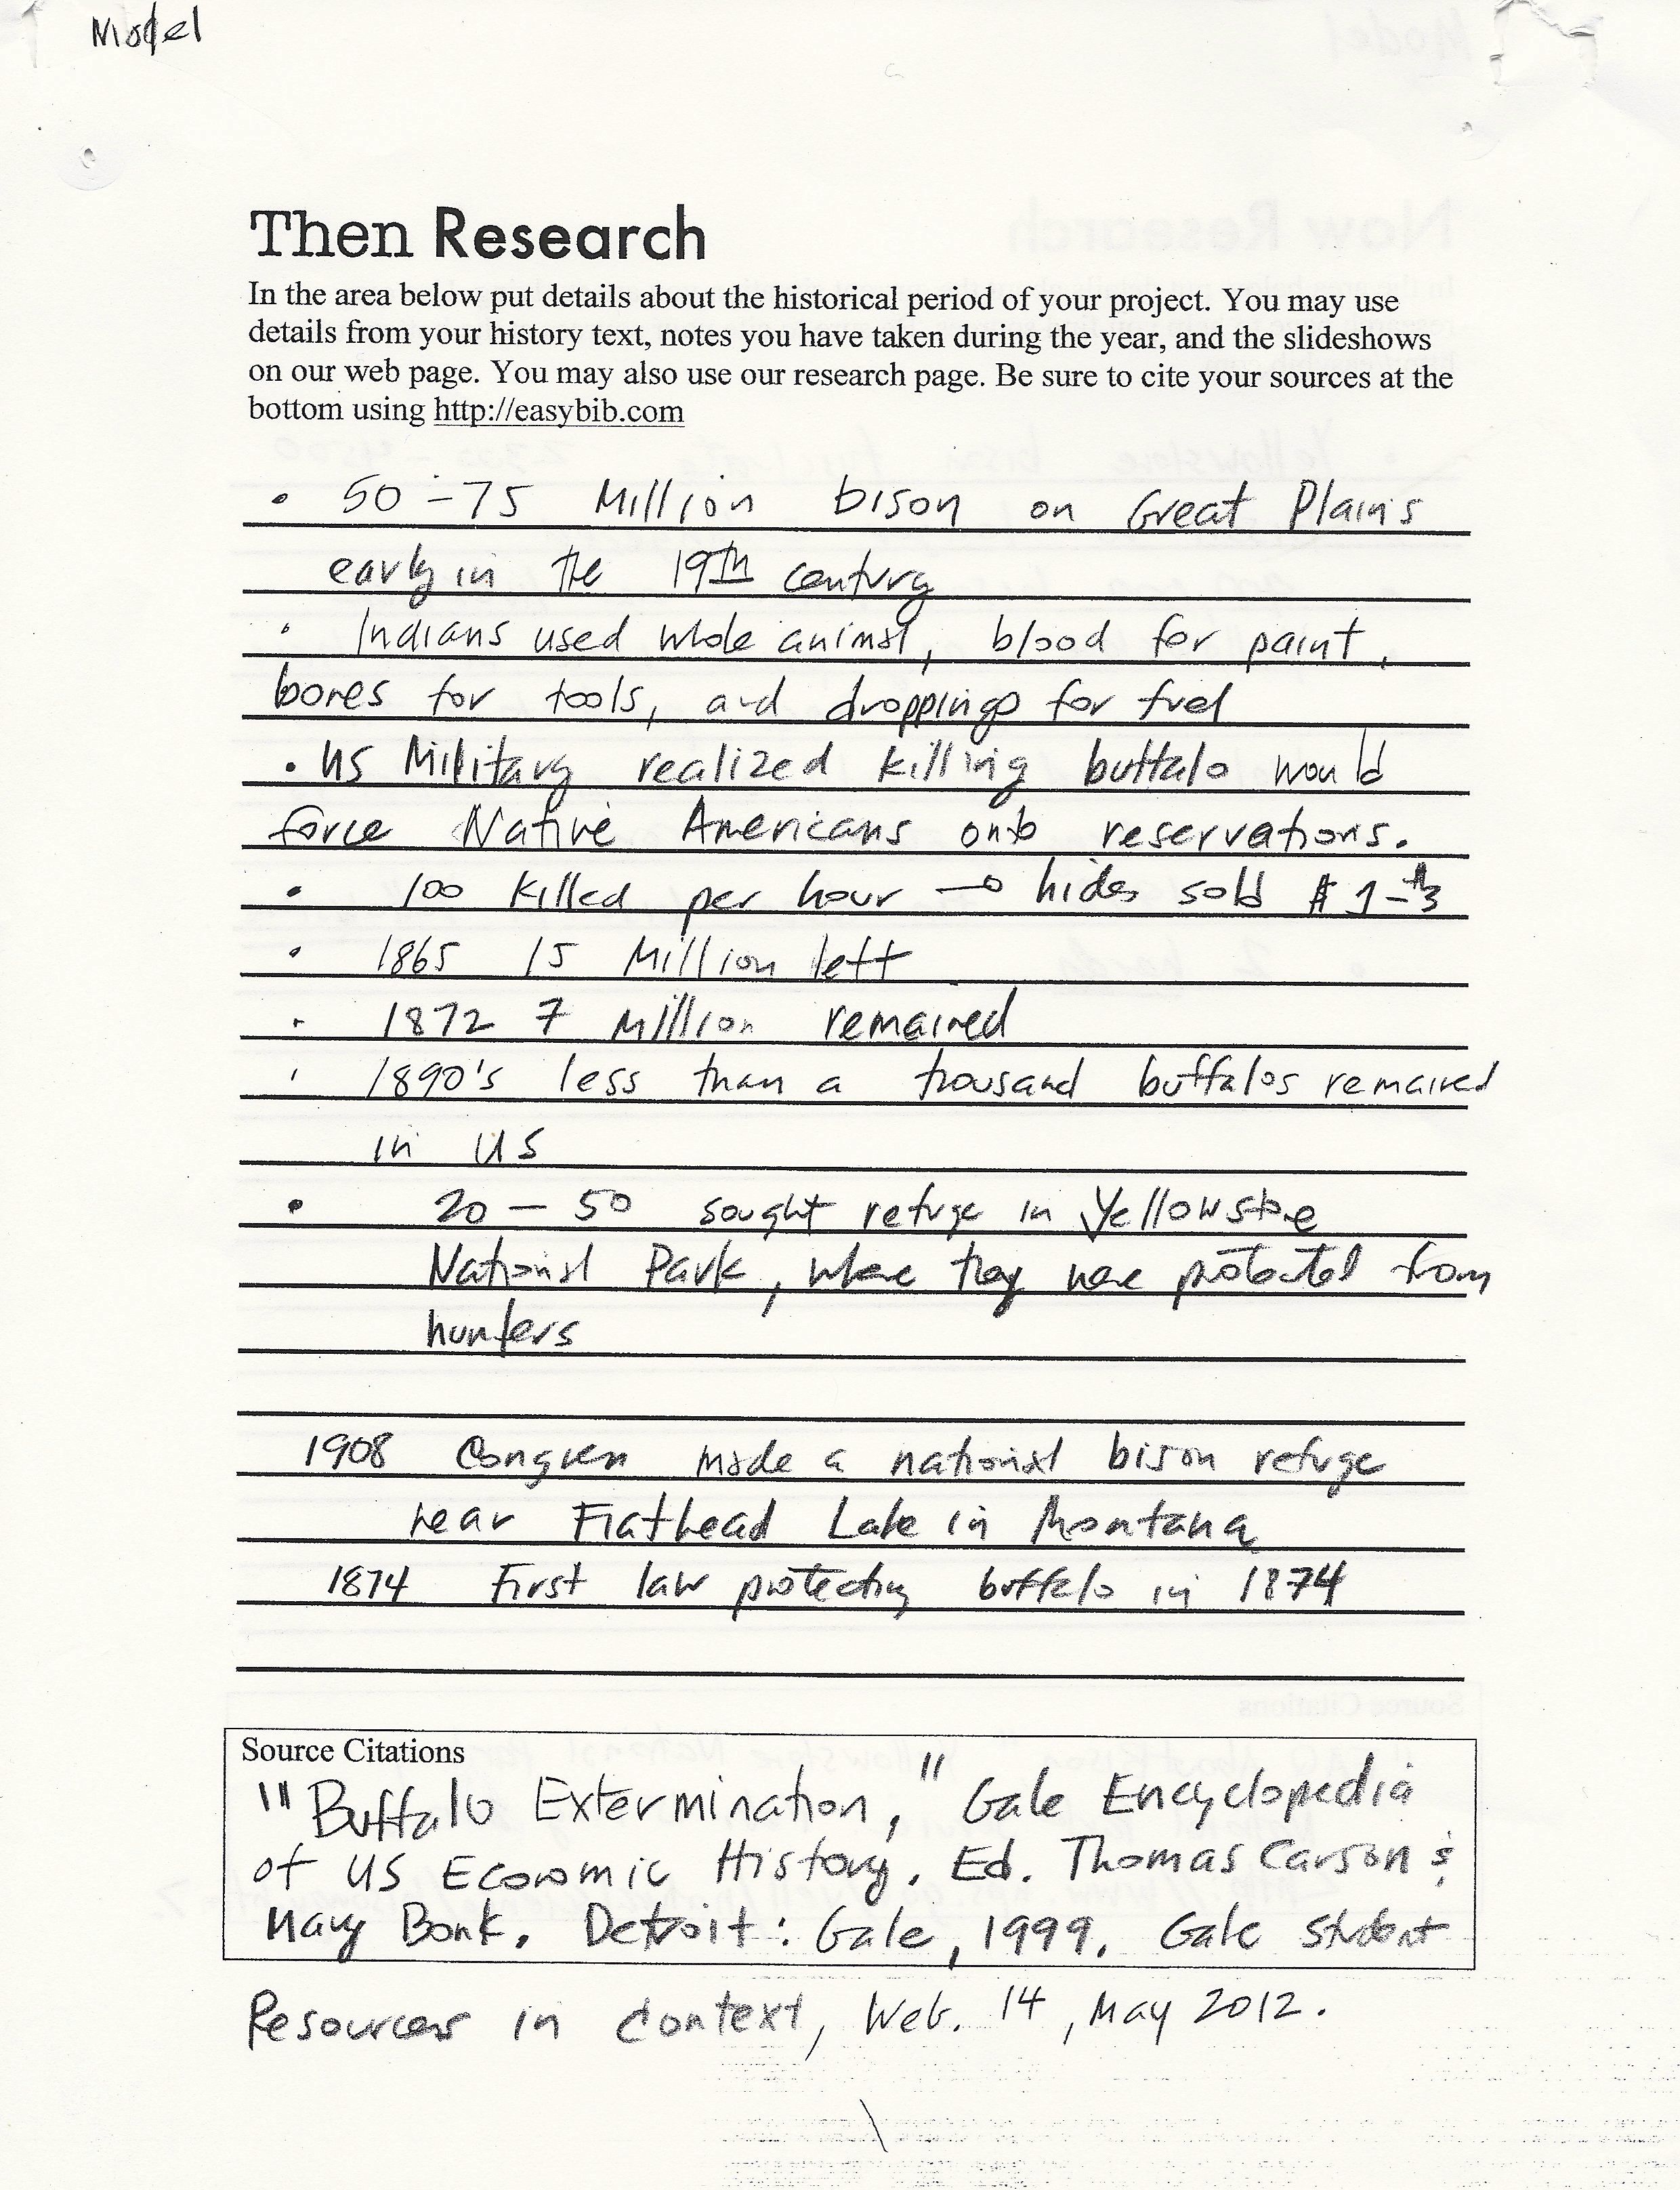 Model
Then Research
In the area below put details about the historical period of your project. You may use
details from your history text, notes you have taken during the year, and the slideshows
on our web page. You may also use our research page. Be sure to cite your sources at the
bottom using http://easybib.com
• 50-75 Million bison on Great Plains
early in the 19th century
• Indians used whole animal, blood for paint,
bones for tools, and droppings for fuel
• US Military realized killing buffalo would
force Native Americans onto reservations.
• 100 killed per hour → hides sold $1-$3
• 1865 15 Million left
• 1872 7 Million remained
• 1890's less than a thousand buffalos remained
in US
• 20 - 50 sought refuge in Yellowstone
National Park, where they were protected from
hunters
1908 Congress made a national bison refuge
near Flathead Lake in Montana
1874 First law protecting buffalo in 1874
Source Citations
"Buffalo Extermination," Gale Encyclopedia
of US Economic History. Ed. Thomas Carson &
Mary Bonk. Detroit: Gale, 1999. Gale Student
Resources in Context, Web. 14, May 2012.